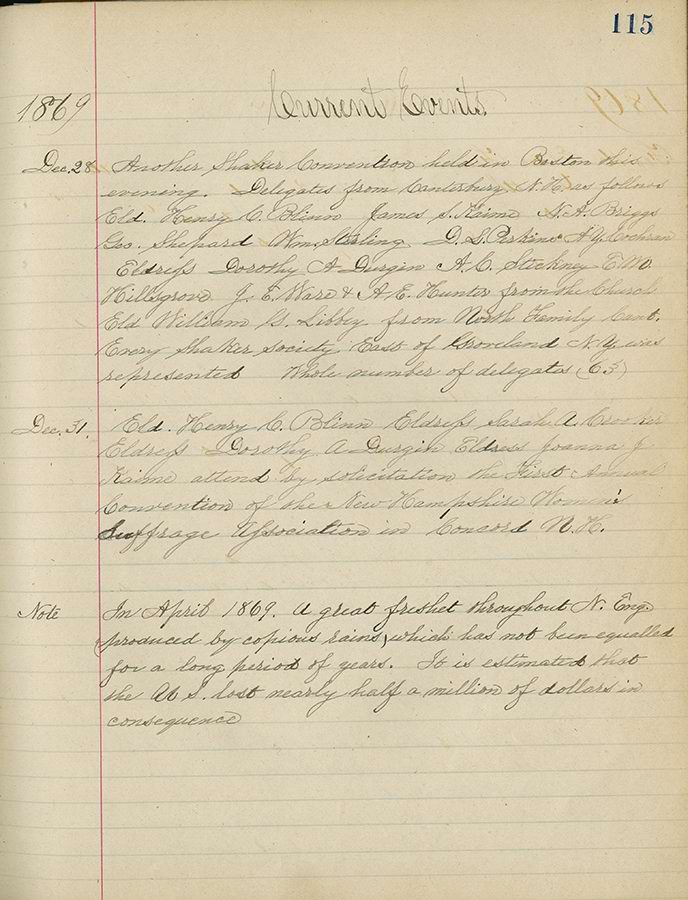 115
1869 Current Events
Dec. 28 Another Shaker Convention held in Boston this
evening. Delegates from Canterbury N.H. as follows
Eld. Henry C. Blinn James S. Kaime N. A. Briggs
Geo. Shepard Wm Stirling D. S. Perkins A. Y. Cochran
Eldress Dorothy A Durgin A. C. Stickney E. M.
Hillsgrove J. E. Ware & A. E. Hunter from the Church
Eld William G. Libbey from North Family Cant.
Every Shaker Society East of Groveland N. Y. was
represented Whole number of delegates (65)
Dec. 31. Eld. Henry C. Blinn Eldress Sarah A. Crooker
Eldress Dorothy A Durgin Eldress Joanna J
Kaime attend by solicitation the First Annual
Convention of the New Hampshire Women's
Suffrage Association in Concord N. H.
Note In April 1869. A great freshet throughout N. Eng.
(produced by copious rains) which has not been equalled
for a long period of years. It is estimated that
the U S. lost nearly half a million of dollars in
consequence